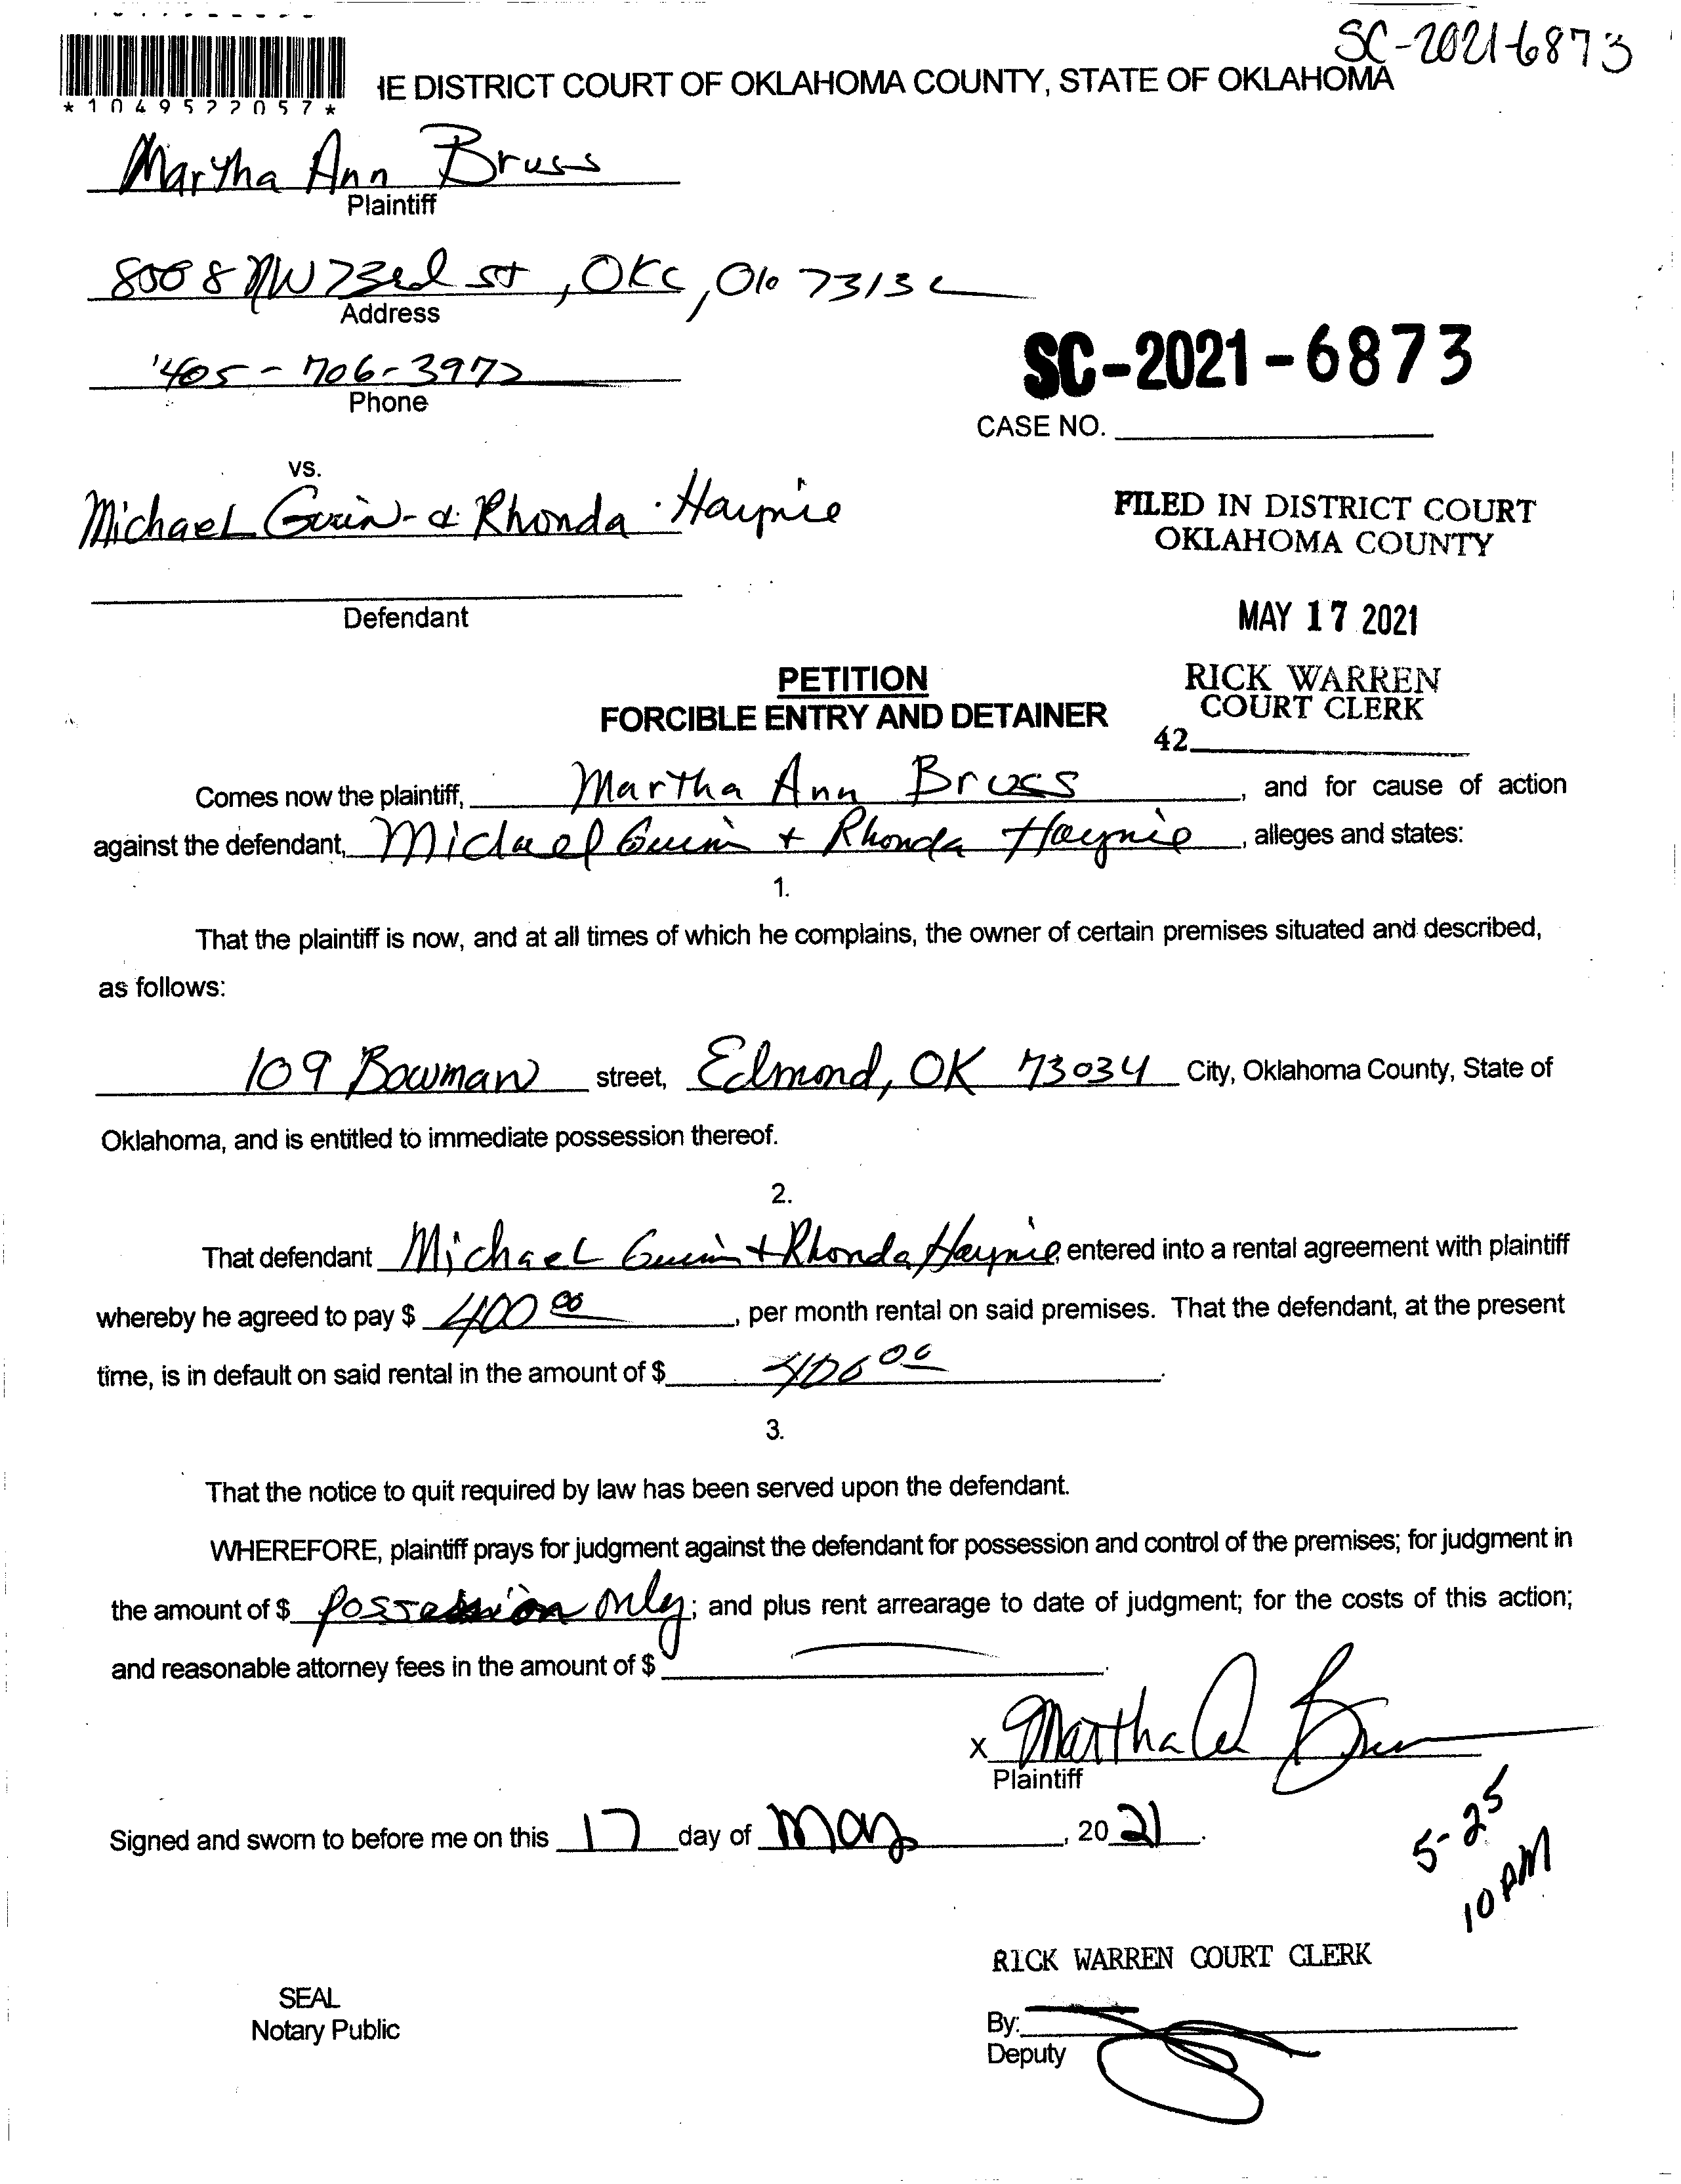 SC-2021-6873
*1049522057*
IE DISTRICT COURT OF OKLAHOMA COUNTY, STATE OF OKLAHOMA
Martha Ann Bruss
Plaintiff
8008 NW 73rd st, OKC, Ok 73132
Address
405-706-3972
Phone
SC-2021-6873
CASE NO.
vs.
Michael Guin & Rhonda Haynie
FILED IN DISTRICT COURT
OKLAHOMA COUNTY
Defendant
MAY 17 2021
PETITION
FORCIBLE ENTRY AND DETAINER
RICK WARREN
COURT CLERK
42
Comes now the plaintiff, Martha Ann Bruss, and for cause of action
against the defendant, Michael Guin + Rhonda Haynie, alleges and states:
1.
That the plaintiff is now, and at all times of which he complains, the owner of certain premises situated and described,
as follows:
109 Bowman street, Edmond, OK 73034 City, Oklahoma County, State of
Oklahoma, and is entitled to immediate possession thereof.
2.
That defendant Michael Guin + Rhonda Haynie entered into a rental agreement with plaintiff
whereby he agreed to pay $ 400 00, per month rental on said premises. That the defendant, at the present
time, is in default on said rental in the amount of $ 00.
3.
That the notice to quit required by law has been served upon the defendant.
WHEREFORE, plaintiff prays for judgment against the defendant for possession and control of the premises; for judgment in
the amount of $ possession only; and plus rent arrearage to date of judgment; for the costs of this action;
and reasonable attorney fees in the amount of $ .
x Martha A Bruss
Plaintiff
Signed and sworn to before me on this 17 day of May, 2021.
5-25
10 AM
RICK WARREN COURT CLERK
SEAL
Notary Public
By:
Deputy